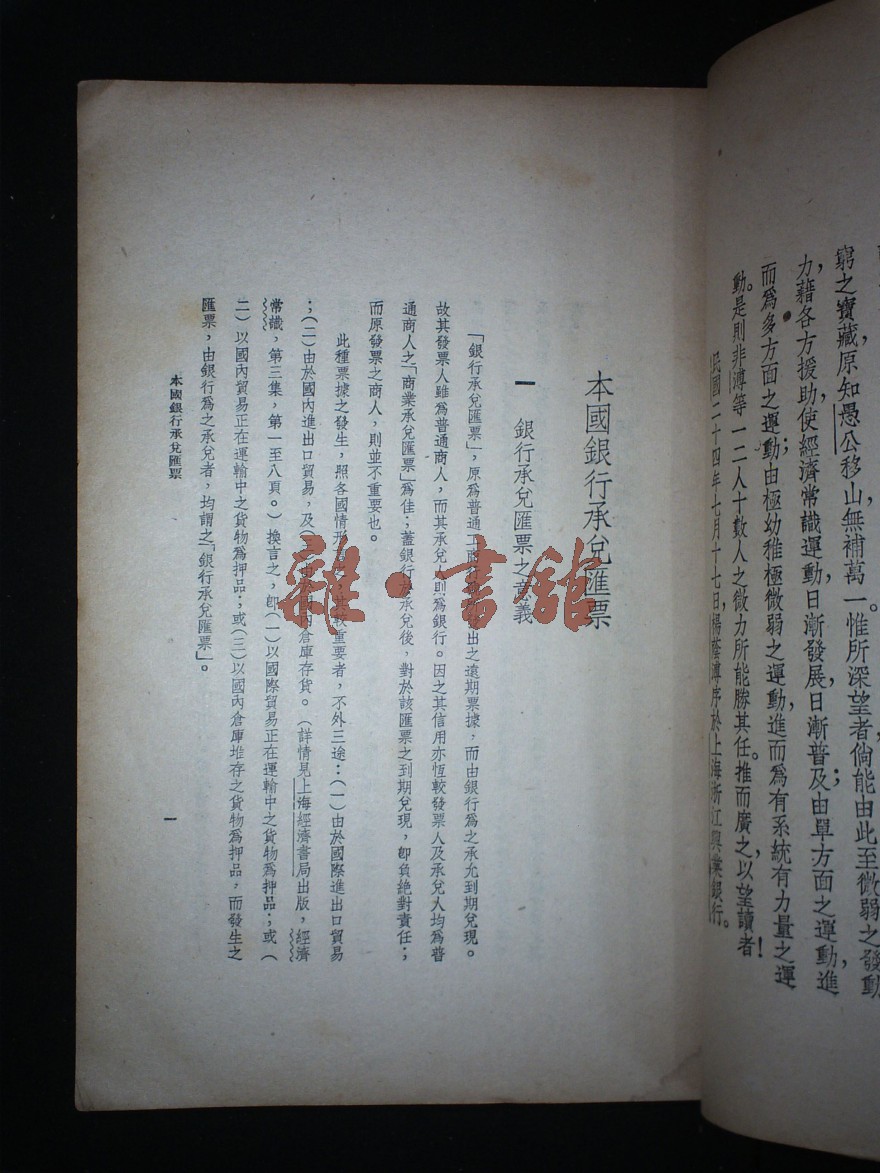 窮之寶藏，原知愚公移山，無補萬一。惟所深望者，倘能由此至微弱之發動
力，藉各方援助，使經濟常識運動，日漸發展，日漸普及；由單方面之運動，進
而爲多方面之運動；由極幼稚極微弱之運動，進而爲有系統有力量之運
動。是則非溥等一二人十數人之微力所能勝其任。推而廣之，以望讀者！
民國二十四年七月十七日，楊蔭溥序於上海浙江興業銀行。
本國銀行承兌匯票
一　銀行承兌匯票之意義
「銀行承兌匯票」，原爲普通工商出之遠期票據，而由銀行爲之承允到期兌現。
故其發票人雖爲普通商人，而其承兌人則爲銀行。因之其信用亦恆較發票人及承兌人均爲普
通商人之「商業承兌匯票」爲佳；蓋銀行於承兌後，對於該匯票之到期兌現，卽負絕對責任；
而原發票之商人，則並不重要也。
此種票據之發生，照各國情形，其較重要者，不外三途：（一）由於國際進出口貿易
；（二）由於國內進出口貿易，及（三）由於國內倉庫存貨。（詳情見上海經濟書局出版，經濟
常識，第三集，第一至八頁。）換言之，卽（一）以國際貿易正在運輸中之貨物爲押品；或（
二）以國內貿易正在運輸中之貨物爲押品；或（三）以國內倉庫堆存之貨物爲押品，而發生之
匯票，由銀行爲之承兌者，均謂之「銀行承兌匯票」。
本國銀行承兌匯票
一
雜·書館